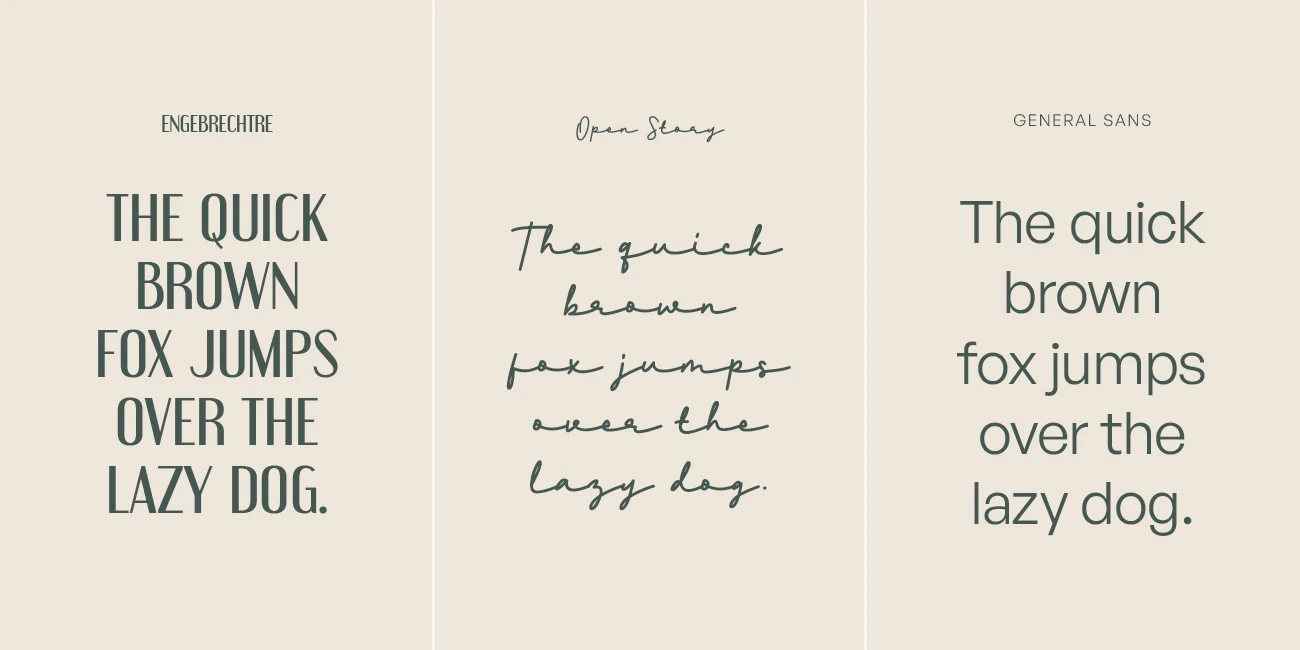 ENGEBRECHTRE
THE QUICK
BROWN
FOX JUMPS
OVER THE
LAZY DOG.
Open Story
The quick
brown
fox jumps
over the
lazy dog.
GENERAL SANS
The quick
brown
fox jumps
over the
lazy dog.